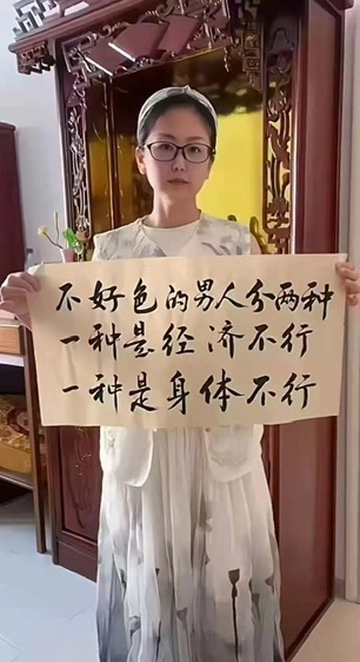 不好色的男人分两种
一种是经济不行
一种是身体不行